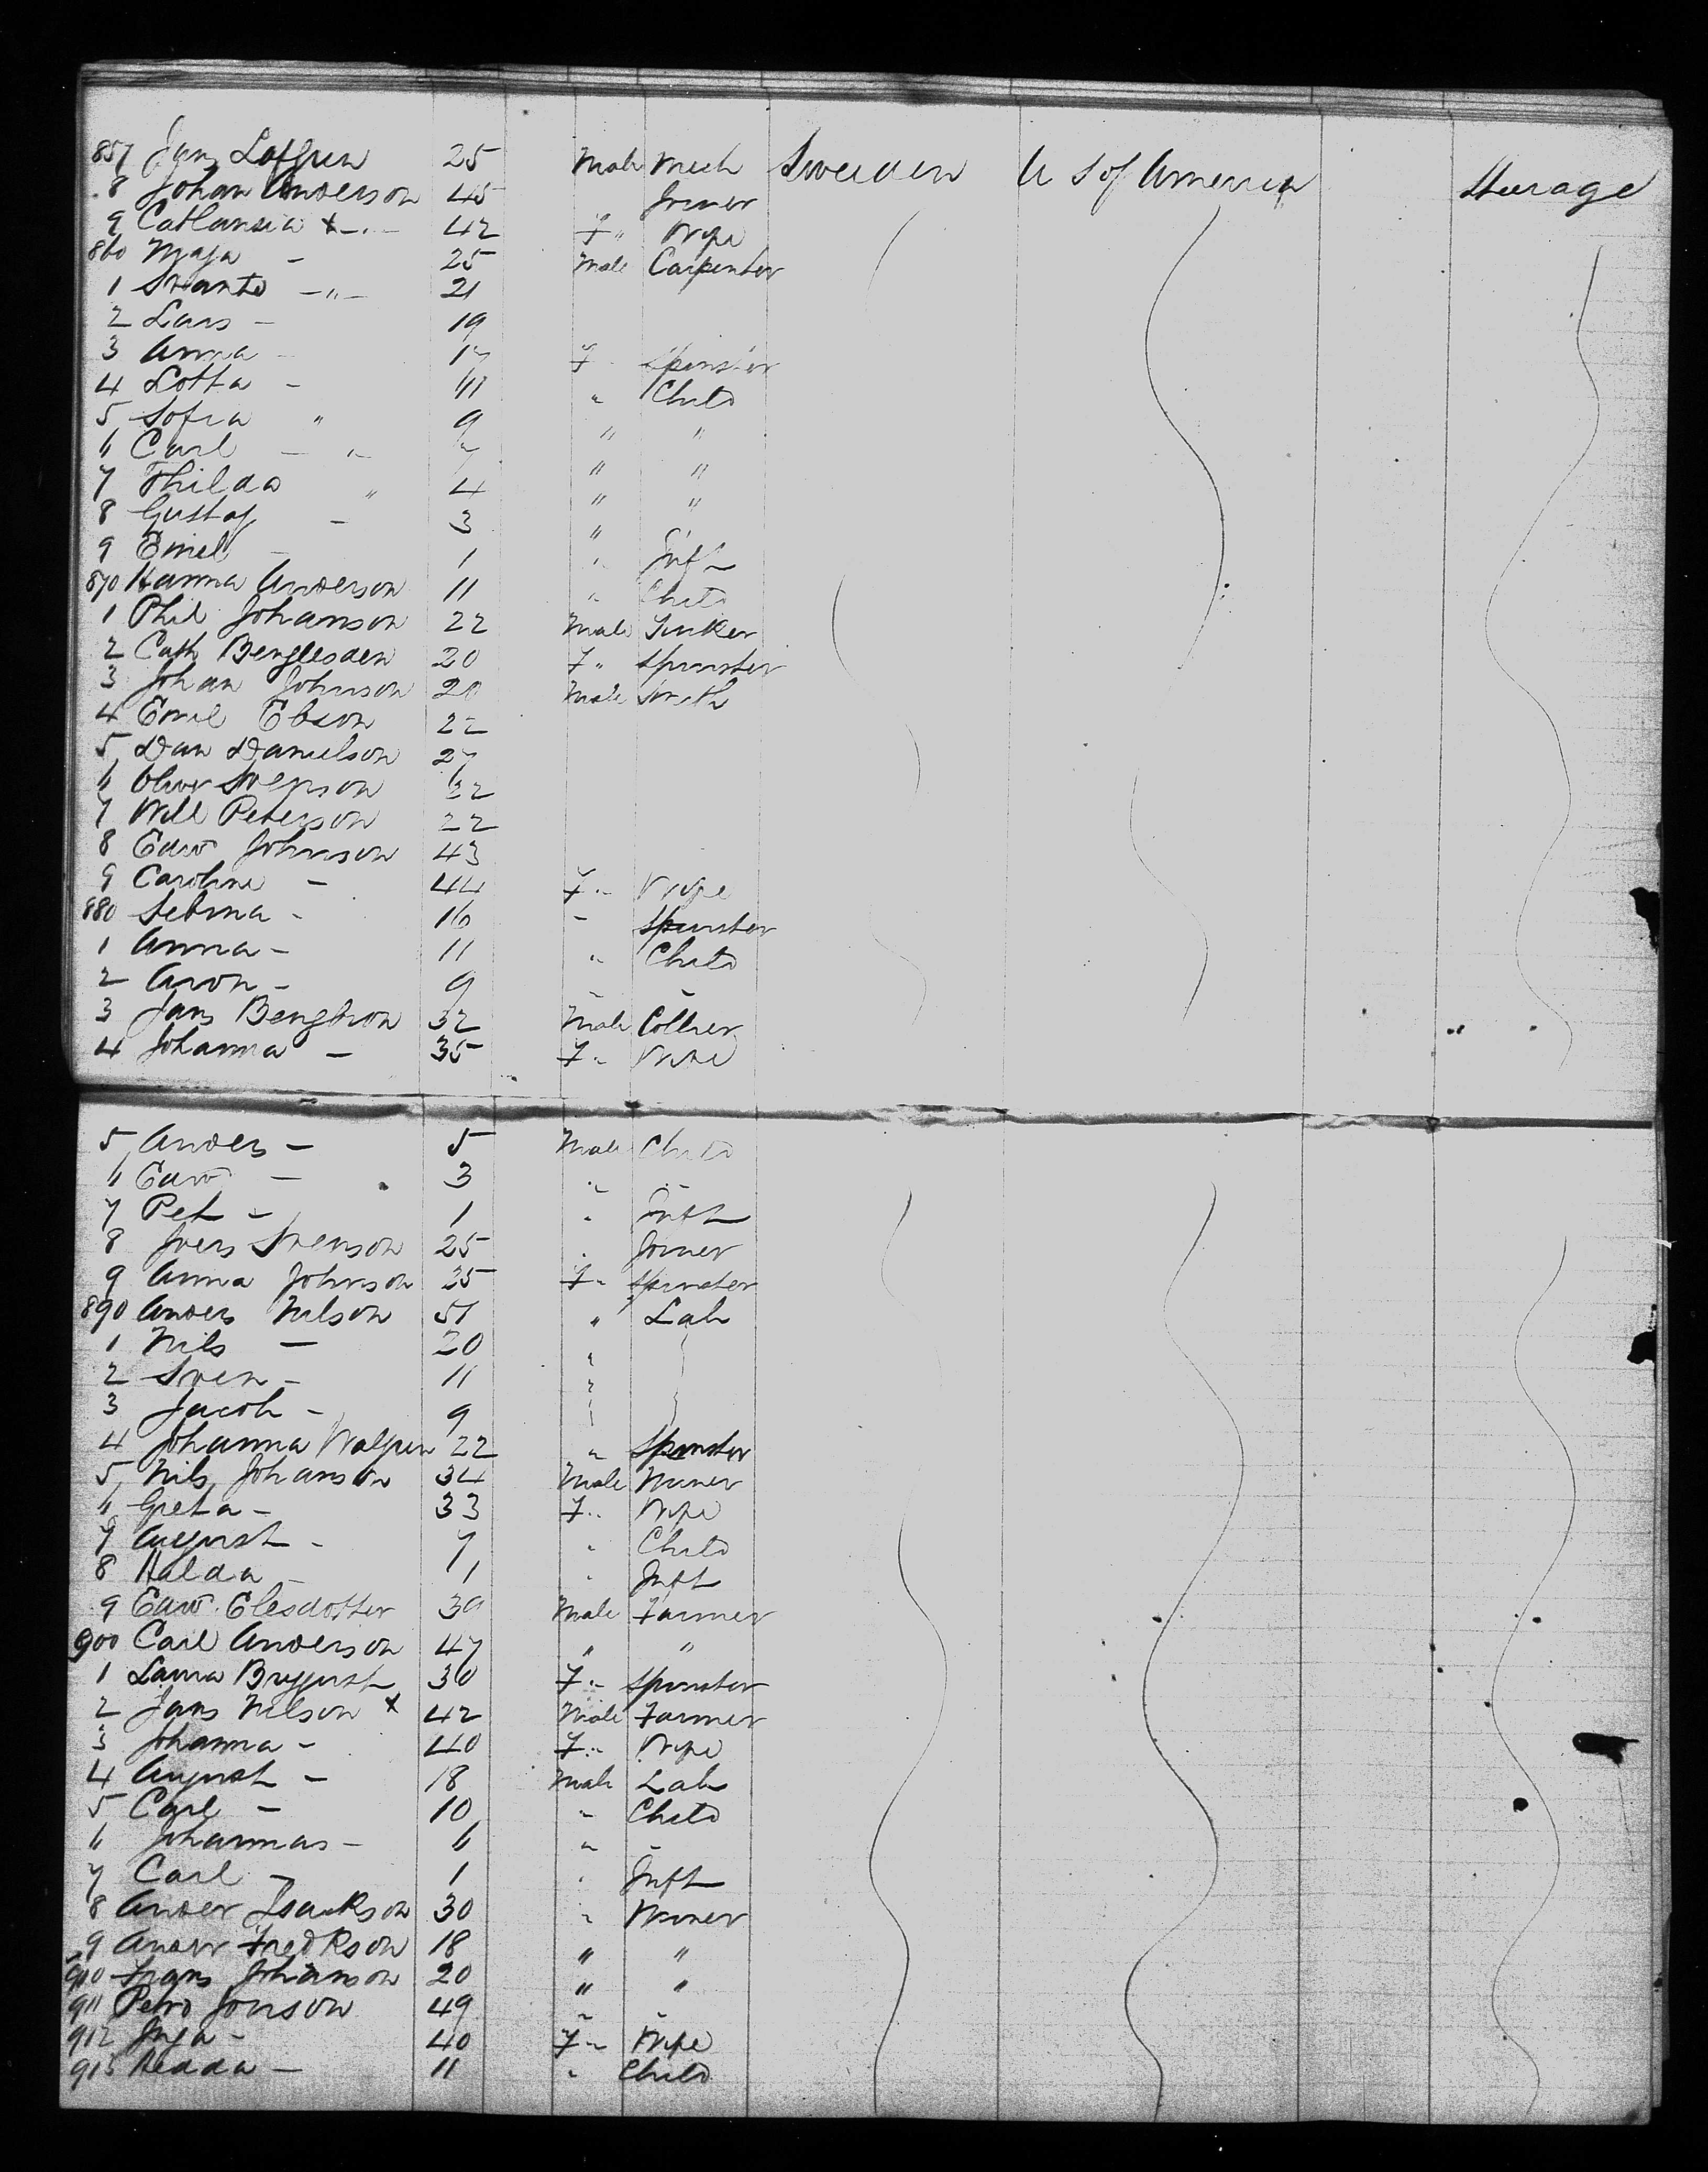 857 Jans Lofgren 25 Male Mech Sweden U S of America Steerage
8 Johan Anderson 45 Joiner
9 Cathansia x -"- 42 F " Wife
860 Maja - 25 Male Carpenter
1 Swante -"- 21
2 Lars - 19
3 Anna - 17 F " Spinster
4 Lotta - 11 " Child
5 Sofia " 9 " "
6 Carl - " - 7 " "
7 Thilda " 4 " "
8 Gustaf - 3 " "
9 Emil - 1 " Inft
870 Hanna Anderson 11 " Child
1 Phil Johanson 22 Male Tinker
2 Cath 20 F " Spinster
3 Johan Johnson 20 Male Smith
4 Emil Ebson 22
5 Dan Danielson 27
6 Oliver Svenson 22
7 Will Peterson 22
8 Edw Johnson 43
9 Caroline - 44 F " Wife
880 Selma - 16 " Spinster
1 Anna - 11 " Child
2 Aron - 9 " "
3 Jans Bengtson 32 Male Collier
4 Johanna - 35 F " Wife
5 Anders - 5 Male Child
6 Edw - 3 " "
7 Pet - 1 " Inft
8 Ivers Svenson 25 " Joiner
9 Anna Johnson 25 F " Spinster
890 Anders Nilson 51 " Lab
1 Nils - 20 "
2 Sven - 11 "
3 Jacob - 9
4 Johanna Walgren 22 " Spinster
5 Nils Johanson 34 Male Miner
6 Greta - 33 F " Wife
7 August - 7 " Child
8 Halda - 1 " Inft
9 Edw. Elesdotter 39 Male Farmer
900 Carl Anderson 47 " "
1 Laura 30 F " Spinster
2 Jans Nilson x 42 Male Farmer
3 Johanna - 40 F " Wife
4 August - 18 Male Lab
5 Carl - 10 " Child
6 Johannas - 6 " "
7 Carl - 1 " Inft
8 Ander Isackson 30 " Miner
9 Ander Fredkson 18 " "
910 Frans Johanson 20 " "
911 Petro Jonson 49 " "
912 Inga - 40 F " Wife
913 Hedda - 11 " Child